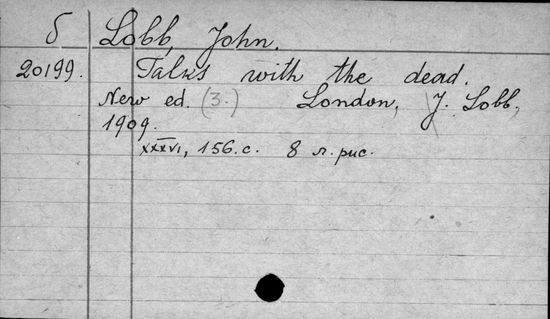 б Lobb, John.
20199. Talks with the dead.
New ed. (3.) London, J. Lobb,
1909.
XXXVI, 156.с. 8 л. рис.